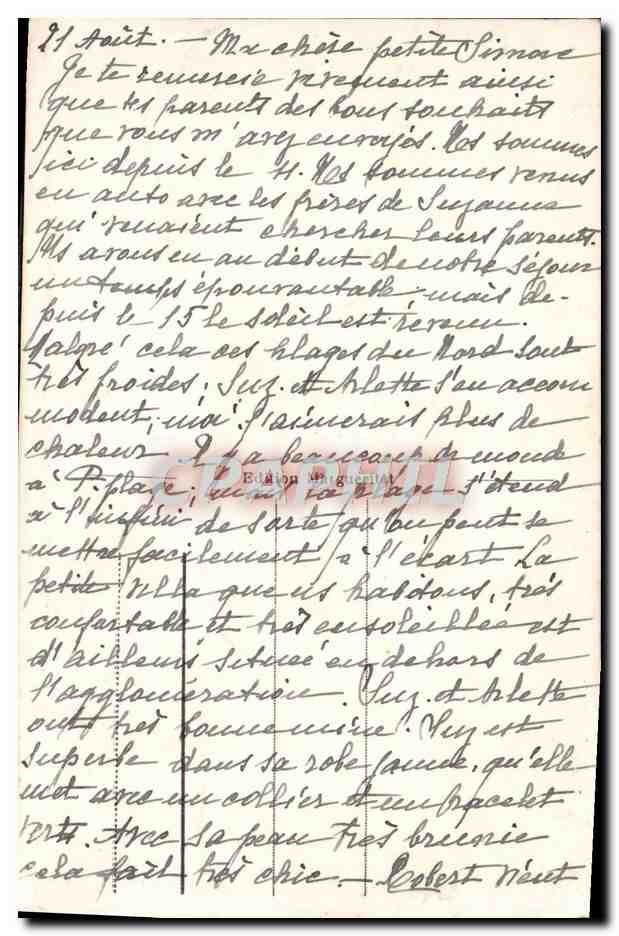 21 Août. — Ma chère petite Simone
Je te remercie vivement ainsi
que tes parents des bons souhaits
que vous m'avez envoyés. Ns sommes
ici depuis le 4. Ns sommes venus
en auto avec les frères de Suzanne
qui venaient chercher leurs parents.
Ns avons eu au début de notre séjour
un temps épouvantable mais de-
puis le 15 le soleil est revenu.
Malgré cela ces plages du Nord sont
très froides. Suz. et Arlette s'en accom
modent, moi j'aimerais plus de
chaleur Il y a beaucoup de monde
à P. plage, mais la plage s'étend
Edition Margueritat
CPAPHIL
.com
à l'infini de sorte qu'on peut se
mettre facilement à l'écart La
petite villa que ns habitons, très
confortable et très ensoleillée est
d'ailleurs située en dehors de
l'agglomération. Suz. et Arlette
ont très bonne mine. Suz est
superbe dans sa robe jaune, qu'elle
met avec un collier et un bracelet
verts. Avec sa peau très brunie
cela fait très chic. — Robert